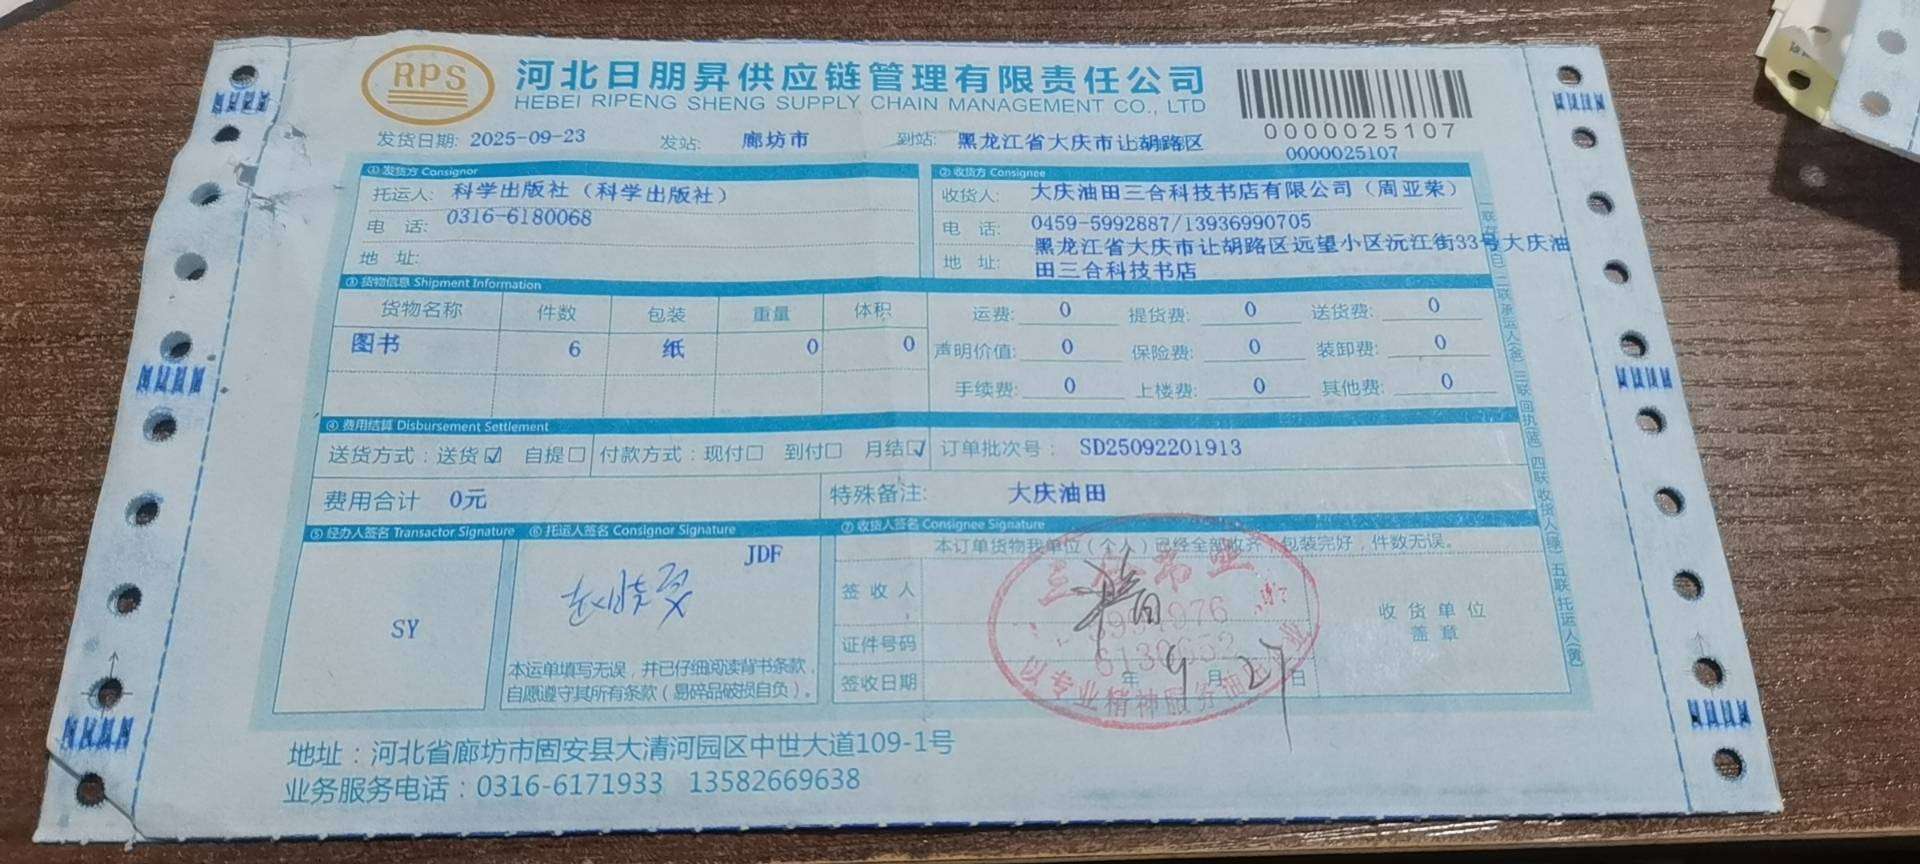 RPS 河北日朋昇供应链管理有限责任公司
HEBEI RIPENG SHENG SUPPLY CHAIN MANAGEMENT CO., LTD
0000025107
发货日期: 2025-09-23 发站: 廊坊市 到站: 黑龙江省大庆市让胡路区 0000025107
① 发货方 Consignor
托运人: 科学出版社（科学出版社）
电 话: 0316-6180068
地 址:
② 收货方 Consignee
收货人: 大庆油田三合科技书店有限公司（周亚荣）
电 话: 0459-5992887/13936990705
地 址: 黑龙江省大庆市让胡路区远望小区沅江街33号大庆油
田三合科技书店
③ 货物信息 Shipment Information
货物名称 件数 包装 重量 体积
图书 6 纸 0 0
运费: 0 提货费: 0 送货费: 0
声明价值: 0 保险费: 0 装卸费: 0
手续费: 0 上楼费: 0 其他费: 0
④ 费用结算 Disbursement Settlement
送货方式：送货☑ 自提☐ 付款方式：现付☐ 到付☐ 月结☑ 订单批次号： SD25092201913
费用合计 0元 特殊备注: 大庆油田
⑤ 经办人签名 Transactor Signature
SY
⑥ 托运人签名 Consignor Signature
JDF
本运单填写无误，并已仔细阅读背书条款，
自愿遵守其所有条款（易碎品破损自负）。
⑦ 收货人签名 Consignee Signature
本订单货物我单位（个人）已经全部收齐，包装完好，件数无误。
签 收 人
证件号码
签收日期 年 9 月 27 日
收 货 单 位
盖 章
以专业精神服务油田
二联承运人 三联回执 四联收货人 五联托运人
地址：河北省廊坊市固安县大清河园区中世大道109-1号
业务服务电话：0316-6171933 13582669638